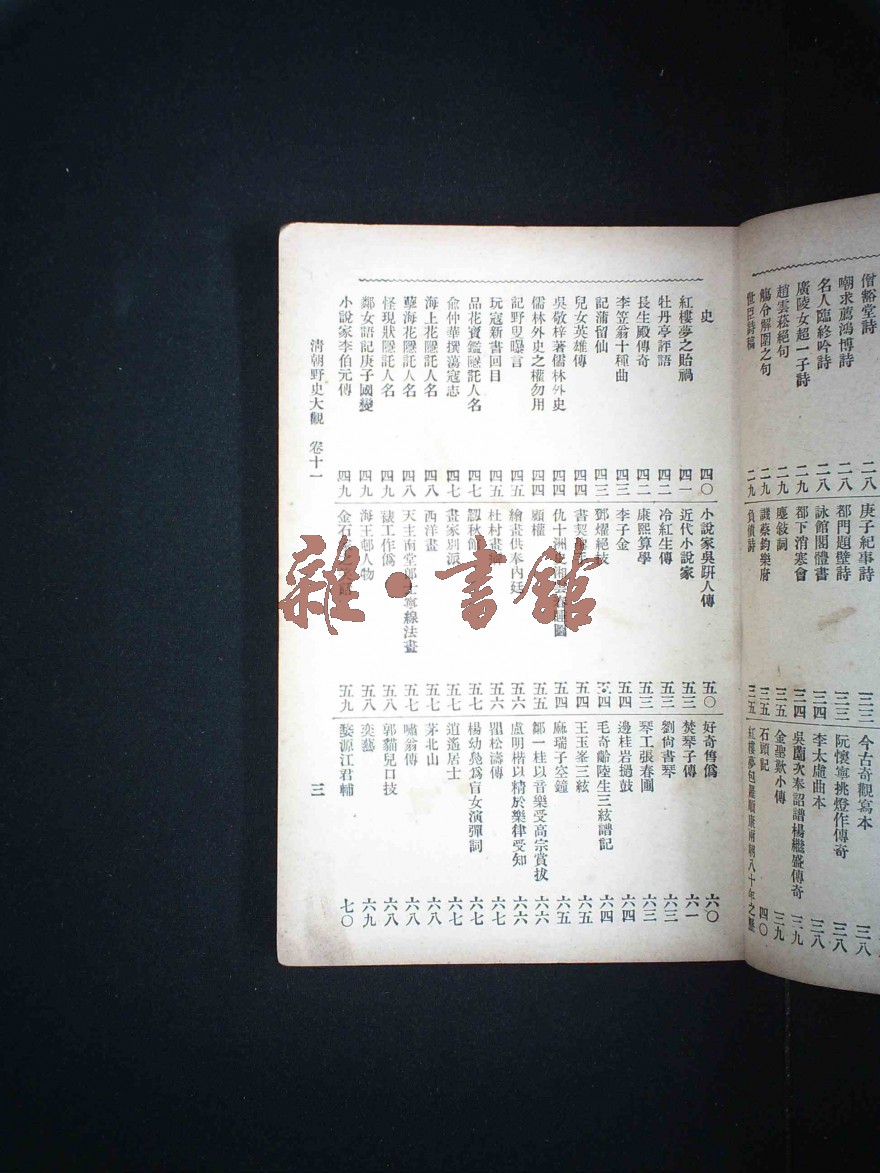 僧谿堂詩 二八
嘲求薦鴻博詩 二八
名人臨終吟詩 二八
廣陵女超一子詩 二九
趙雲菘絕句 二九
觴令解圍之句 二九
世臣詩稿 二九
庚子紀事詩 三三
都門題壁詩 三三
詠館閣體書 三四
都下消寒會 三四
壓敍詞 三五
譏蔡鈞樂府 三五
負債詩 三五
今古奇觀寫本 三八
阮懷寧挑燈作傳奇 三八
李太虛曲本 三八
吳薗次奉詔譜楊繼盛傳奇 三九
金聖歎小傳 三九
石頭記 四〇
紅樓夢包羅順康兩朝八十年之歷
史 四〇
紅樓夢之貽禍 四一
牡丹亭評語 四二
長生殿傳奇 四二
李笠翁十種曲 四三
記蒲留仙 四三
兒女英雄傳 四四
吳敬梓著儒林外史 四四
儒林外史之權勿用 四四
記野叟曝言 四五
玩寇新書回目 四五
品花寶鑑隱託人名 四七
俞仲華撰蕩寇志 四七
海上花隱託人名 四八
孽海花隱託人名 四八
怪現狀隱託人名 四九
鄰女語記庚子國變 四九
小說家李伯元傳 四九
小說家吳趼人傳 五〇
近代小說家 五三
冷紅生傳 五三
康熙算學 五三
李子金 五四
鄧燿絕技 五四
書契 五四
仇十洲 圖 五四
顧權 五五
繪畫供奉內廷 五六
杜村畫 五七
紉秋 五七
畫家別派 五七
西洋畫 五七
天主南堂郎士寧線法畫 五七
裱工作僞 五八
海王邨人物 五八
金石 五九
好奇售僞 六〇
焚琴子傳 六一
劉尙書琴 六三
琴工張春圃 六三
邊桂岩撾鼓 六四
毛奇齡陸生三絃譜記 六四
王玉峯三絃 六五
麻瑞子空鐘 六五
鄒一桂以音樂受高宗賞拔 六六
盧明楷以精於樂律受知 六六
瞿松濤傳 六七
楊幼鳧爲盲女演彈詞 六七
逍遙居士 六七
茅北山 六八
嘯翁傳 六八
郭貓兒口技 六八
奕藝 六九
婺源江君輔 七〇
清朝野史大觀 卷十一 三
雜·書館